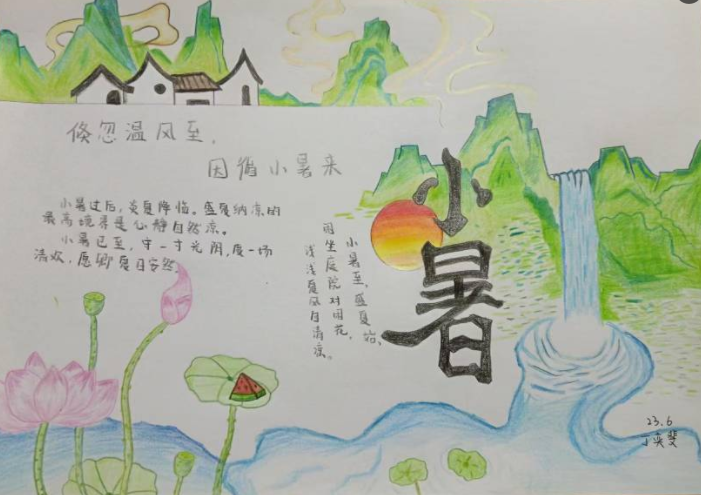 倏忽温风至，
因循小暑来
小暑过后，炎夏降临。盛夏纳凉的
最高境界是心静自然凉。
小暑已至，守一寸光阴，度一场
清欢，愿卿夏日安然。
小暑至，盛夏始，
闲坐庭院对闲花，
浅浅夏风自清凉。
小暑
23.6
丁奕斐